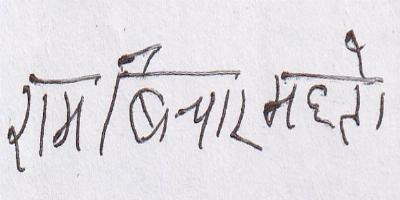 राम बिचार महतो